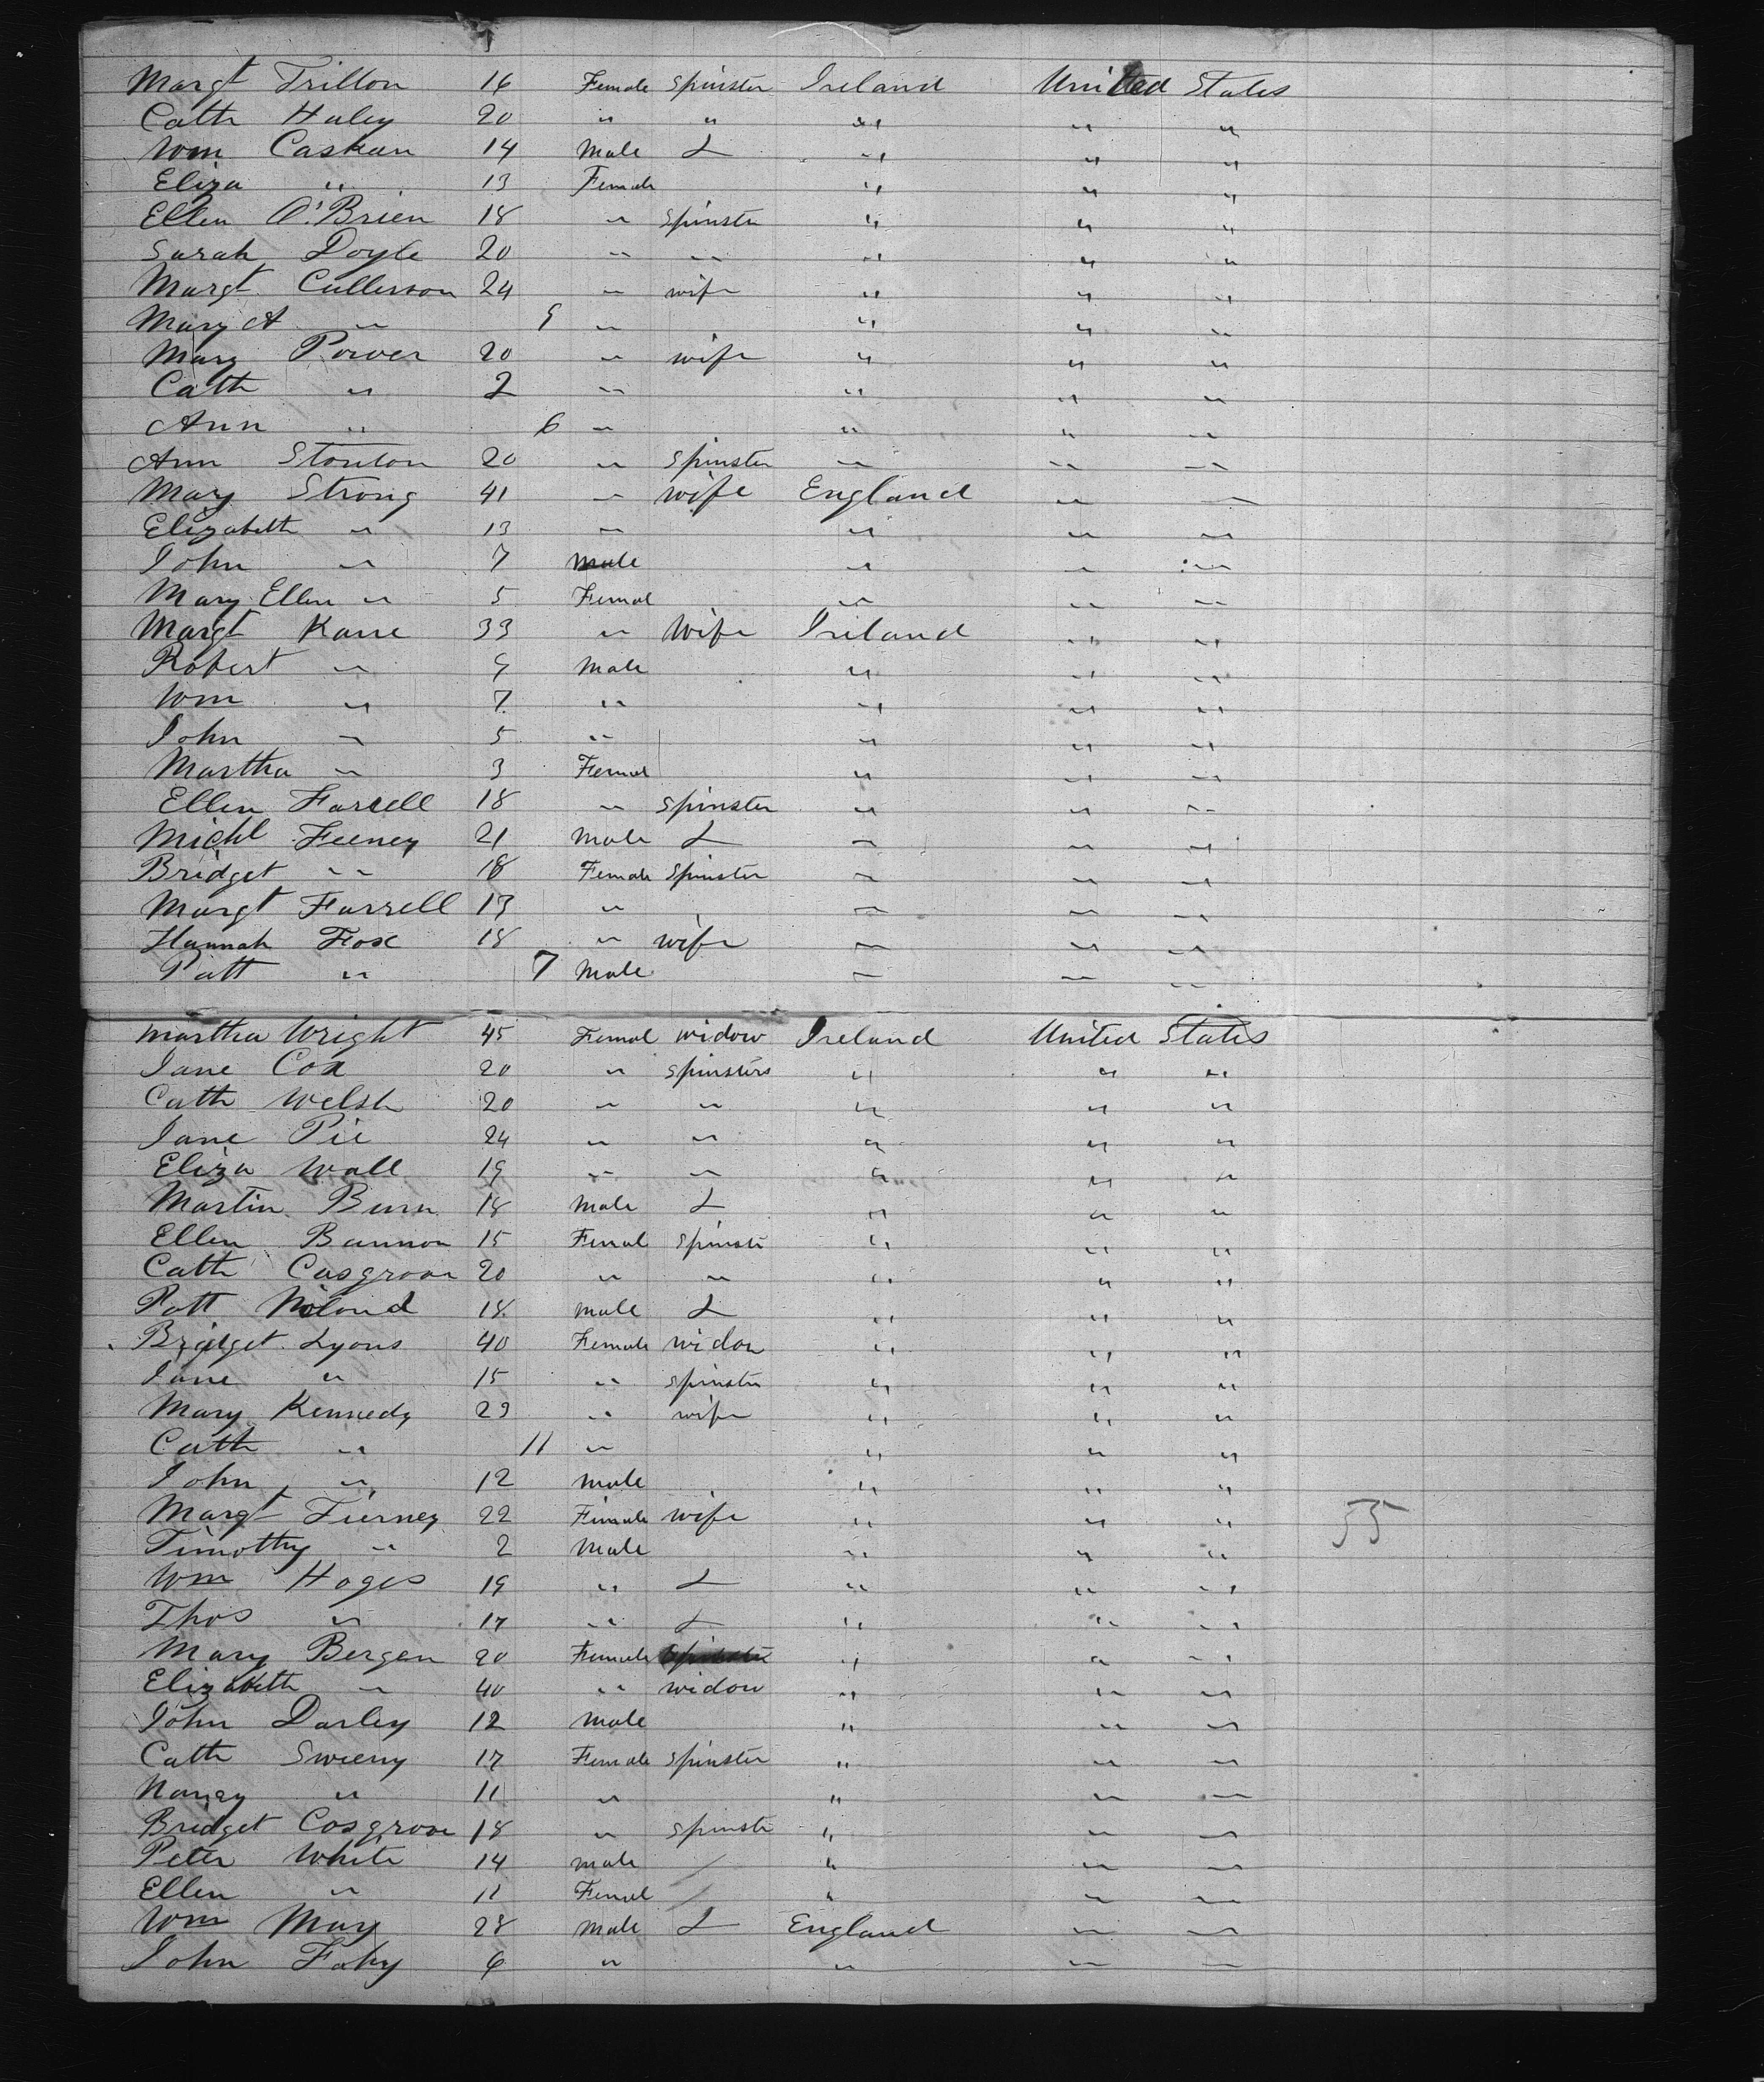 Margt Trillon 16 Female Spinster Ireland United States
Cath Haley 20 " " " " "
Wm Caskan 14 Male L " " "
Eliza " 13 Female " " "
Ellen O'Brien 18 " Spinster " " "
Sarah Doyle 20 " " " " "
Margt Cullerson 24 " wife " " "
Mary A " 9 " " " "
Mary Power 20 " wife " " "
Cath " 2 " " " "
Ann " 6 " " " "
Ann Stonton 20 " Spinster " " "
Mary Strong 41 " wife England " "
Elizabeth " 13 " " " "
John " 7 Male " " "
Mary Ellen " 5 Femal " " "
Margt Kane 33 " Wife Ireland " "
Robert " 9 Male " " "
Wm " 7 " " " "
John " 5 " " " "
Martha " 3 Femal " " "
Ellen Farrell 18 " Spinster " " "
Michl Feeney 21 Male L " " "
Bridget " 18 Female Spinster " " "
Margt Farrell 13 " " " "
Hannah Fox 18 " wife " " "
Patt " 7 Male " " "
Martha Wright 45 Femal widow Ireland United States
Jane Cox 20 " Spinsters " " "
Cath Welsh 20 " " " " "
Jane Pie 24 " " " " "
Eliza Wall 19 " " " " "
Martin Burn 18 Male L " " "
Ellen Bannon 15 Femal Spinste " " "
Cath Cosgrove 20 " " " " "
Patt Noland 18 Male L " " "
Bridget Lyons 40 Female widow " " "
Jane " 15 " Spinster " " "
Mary Kennedy 29 " wife " " "
Cath " 11 " " " "
John " 12 Male " " "
Margt Tierney 22 Female wife " " " 55
Timothy " 2 Male " " "
Wm Hoges 19 " L " " "
Thos " 17 " L " " "
Mary Bergen 20 Female " " "
Elizabeth " 40 " widow " " "
John Darley 12 Male " " "
Cath Sweeny 17 Female Spinster " " "
Nancy " 11 " " " "
Bridget Cosgrove 18 " Spinste " " "
Peter White 14 Male " " "
Ellen " 11 Femal " " "
Wm May 28 Male L England " "
John Fahy 6 " " " "